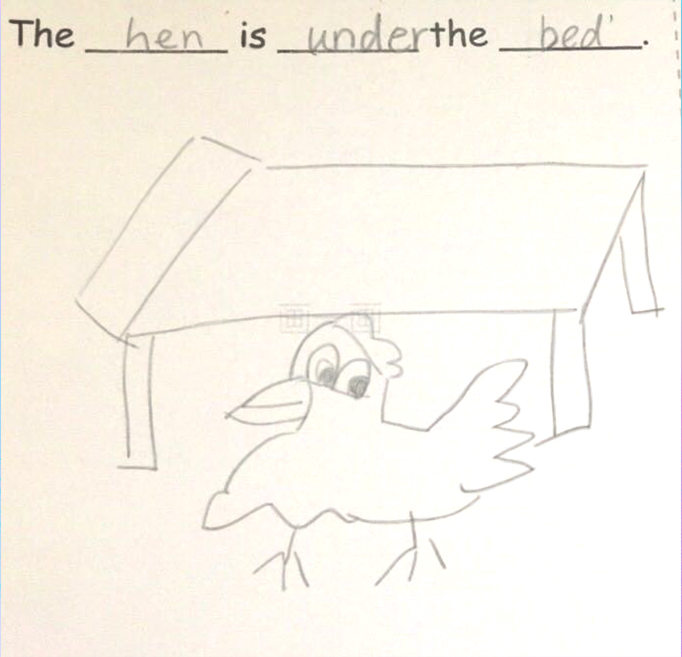 The hen is under the bed.